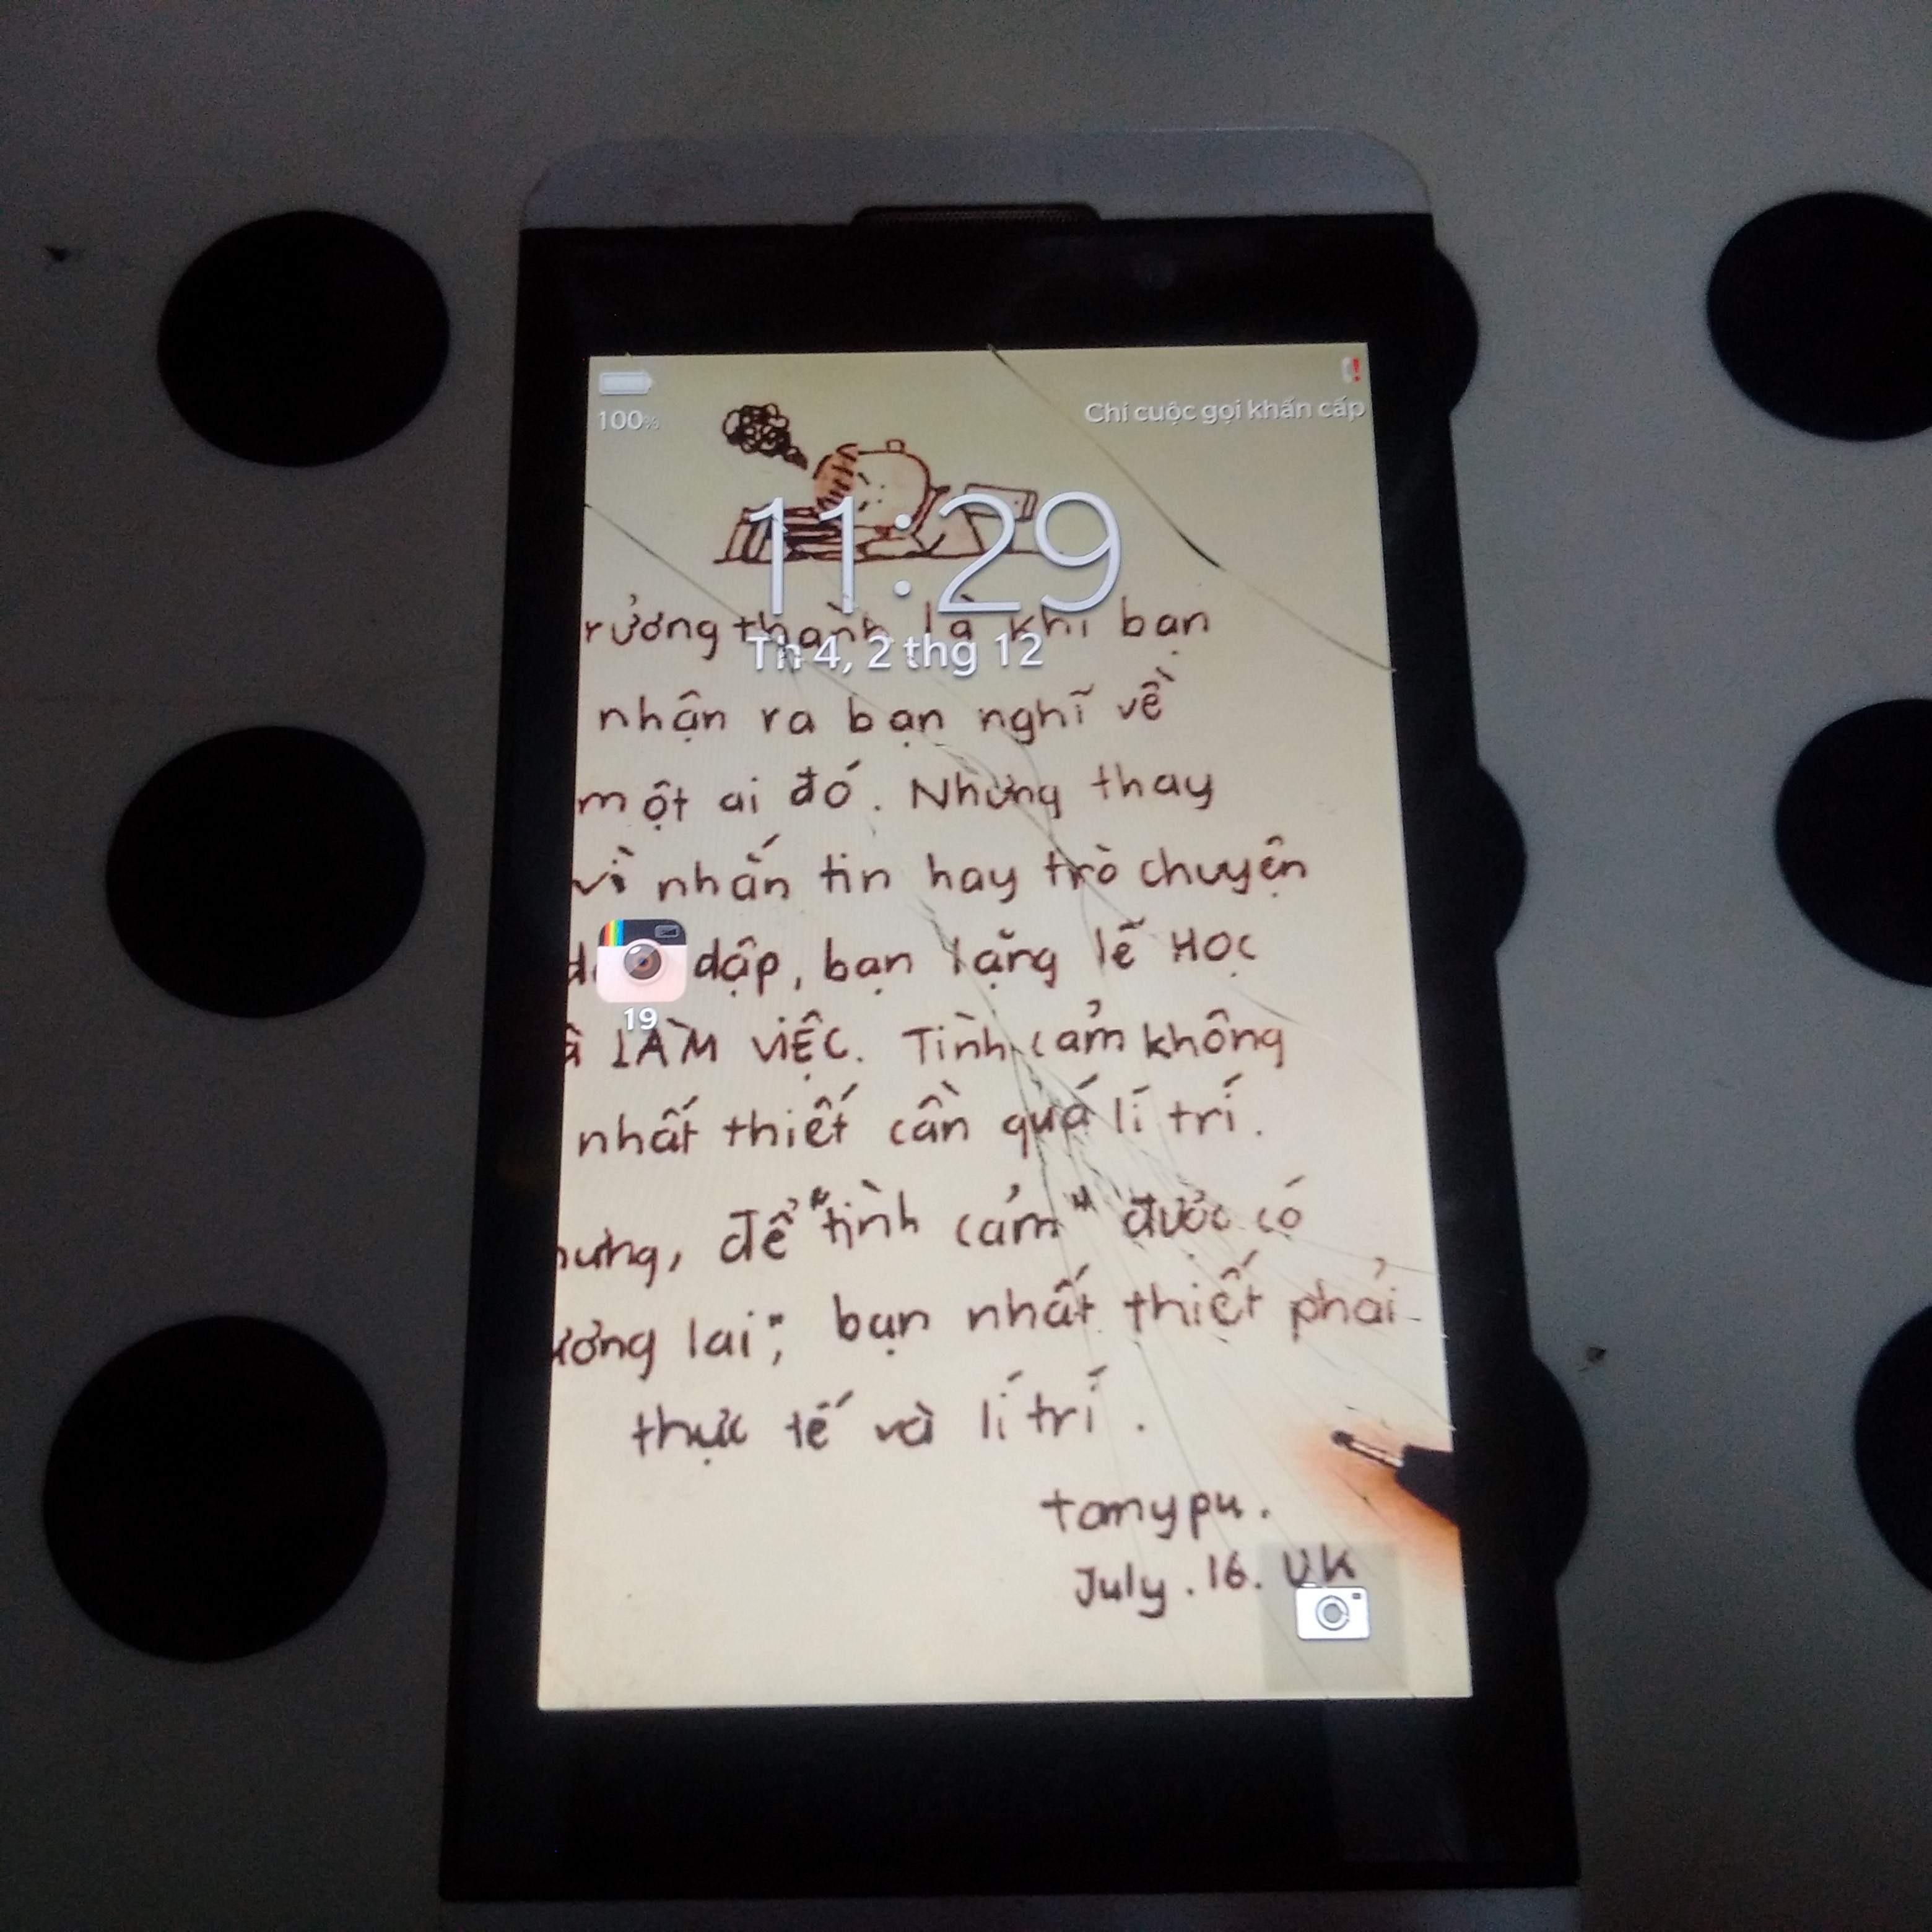 100%
Chỉ cuộc gọi khẩn cấp
11:29
rưởng thành là khi bạn
Th 4, 2 thg 12
nhận ra bạn nghĩ về
một ai đó. Nhưng thay
vì nhắn tin hay trò chuyện
dập, bạn lặng lẽ HỌC
19
LÀM VIỆC. Tình cảm không
nhất thiết cần quá lí trí.
hưng, để "tình cảm" được có
ương lai", bạn nhất thiết phải
thực tế và lí trí.
tamypu.
July. 16. UK